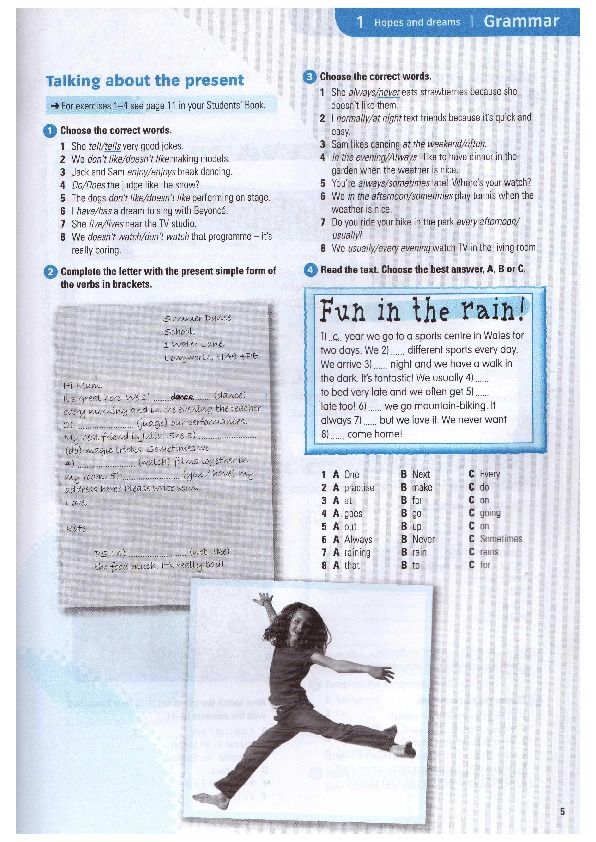 1 Hopes and dreams | Grammar
Talking about the present
→ For exercises 1–4 see page 11 in your Students' Book.
1 Choose the correct words.
1 She tell/tells very good jokes.
2 We don't like/doesn't like making models.
3 Jack and Sam enjoy/enjoys break dancing.
4 Do/Does the judge like the show?
5 The dogs don't like/doesn't like performing on stage.
6 I have/has a dream to sing with Beyoncé.
7 She live/lives near the TV studio.
8 We doesn't watch/don't watch that programme – it's
really boring.
2 Complete the letter with the present simple form of
the verbs in brackets.
Summer Dance
School,
1 Water Lane,
Hi Mum,
It's great here. We 1) ...dance... (dance)
every morning and in the evening the teacher
2) .................. (judge) our performances.
My best friend is Julia. She 3) ..................
(do) magic tricks. Sometimes we
4) .................. (watch) films together in
my room. 5) .................. (you / have) my
address here? Please write soon.
Love,
Kate
PS I 6) .................. (not like)
the food much. It's really bad!
3 Choose the correct words.
1 She always/never eats strawberries because she
doesn't like them.
2 I normally/at night text friends because it's quick and
easy.
3 Sam likes dancing at the weekend/often.
4 In the evening/Always I like to have dinner in the
garden when the weather is nice.
5 You're always/sometimes late! Where's your watch?
6 We in the afternoon/sometimes play tennis when the
weather is nice.
7 Do you ride your bike in the park every afternoon/
usually?
8 We usually/every evening watch TV in the living room.
4 Read the text. Choose the best answer, A, B or C.
Fun in the rain!
1) ..C.. year we go to a sports centre in Wales for
two days. We 2) ...... different sports every day.
We arrive 3) ...... night and we have a walk in
the dark. It's fantastic! We usually 4) ......
to bed very late and we often get 5) ......
late too! 6) ...... we go mountain-biking. It
always 7) ...... but we love it. We never want
8) ...... come home!
1 A One B Next C Every
2 A practise B make C do
3 A at B for C on
4 A goes B go C going
5 A out B up C on
6 A Always B Never C Sometimes
7 A raining B rain C rains
8 A that B to C for
5